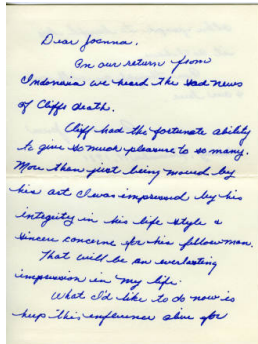 Dear Joanna.
On our return from
Indonesia we heard the sad news
of Cliffs death.
Cliff had the fortunate ability
to give so much pleasure to so many.
More then just being moved by
his art I was impressed by his
integrity in his life style &
sincere concern for his fellowman.
That will be an everlasting
impression in my life.
What I'd like to do now is
keep this inference alive for